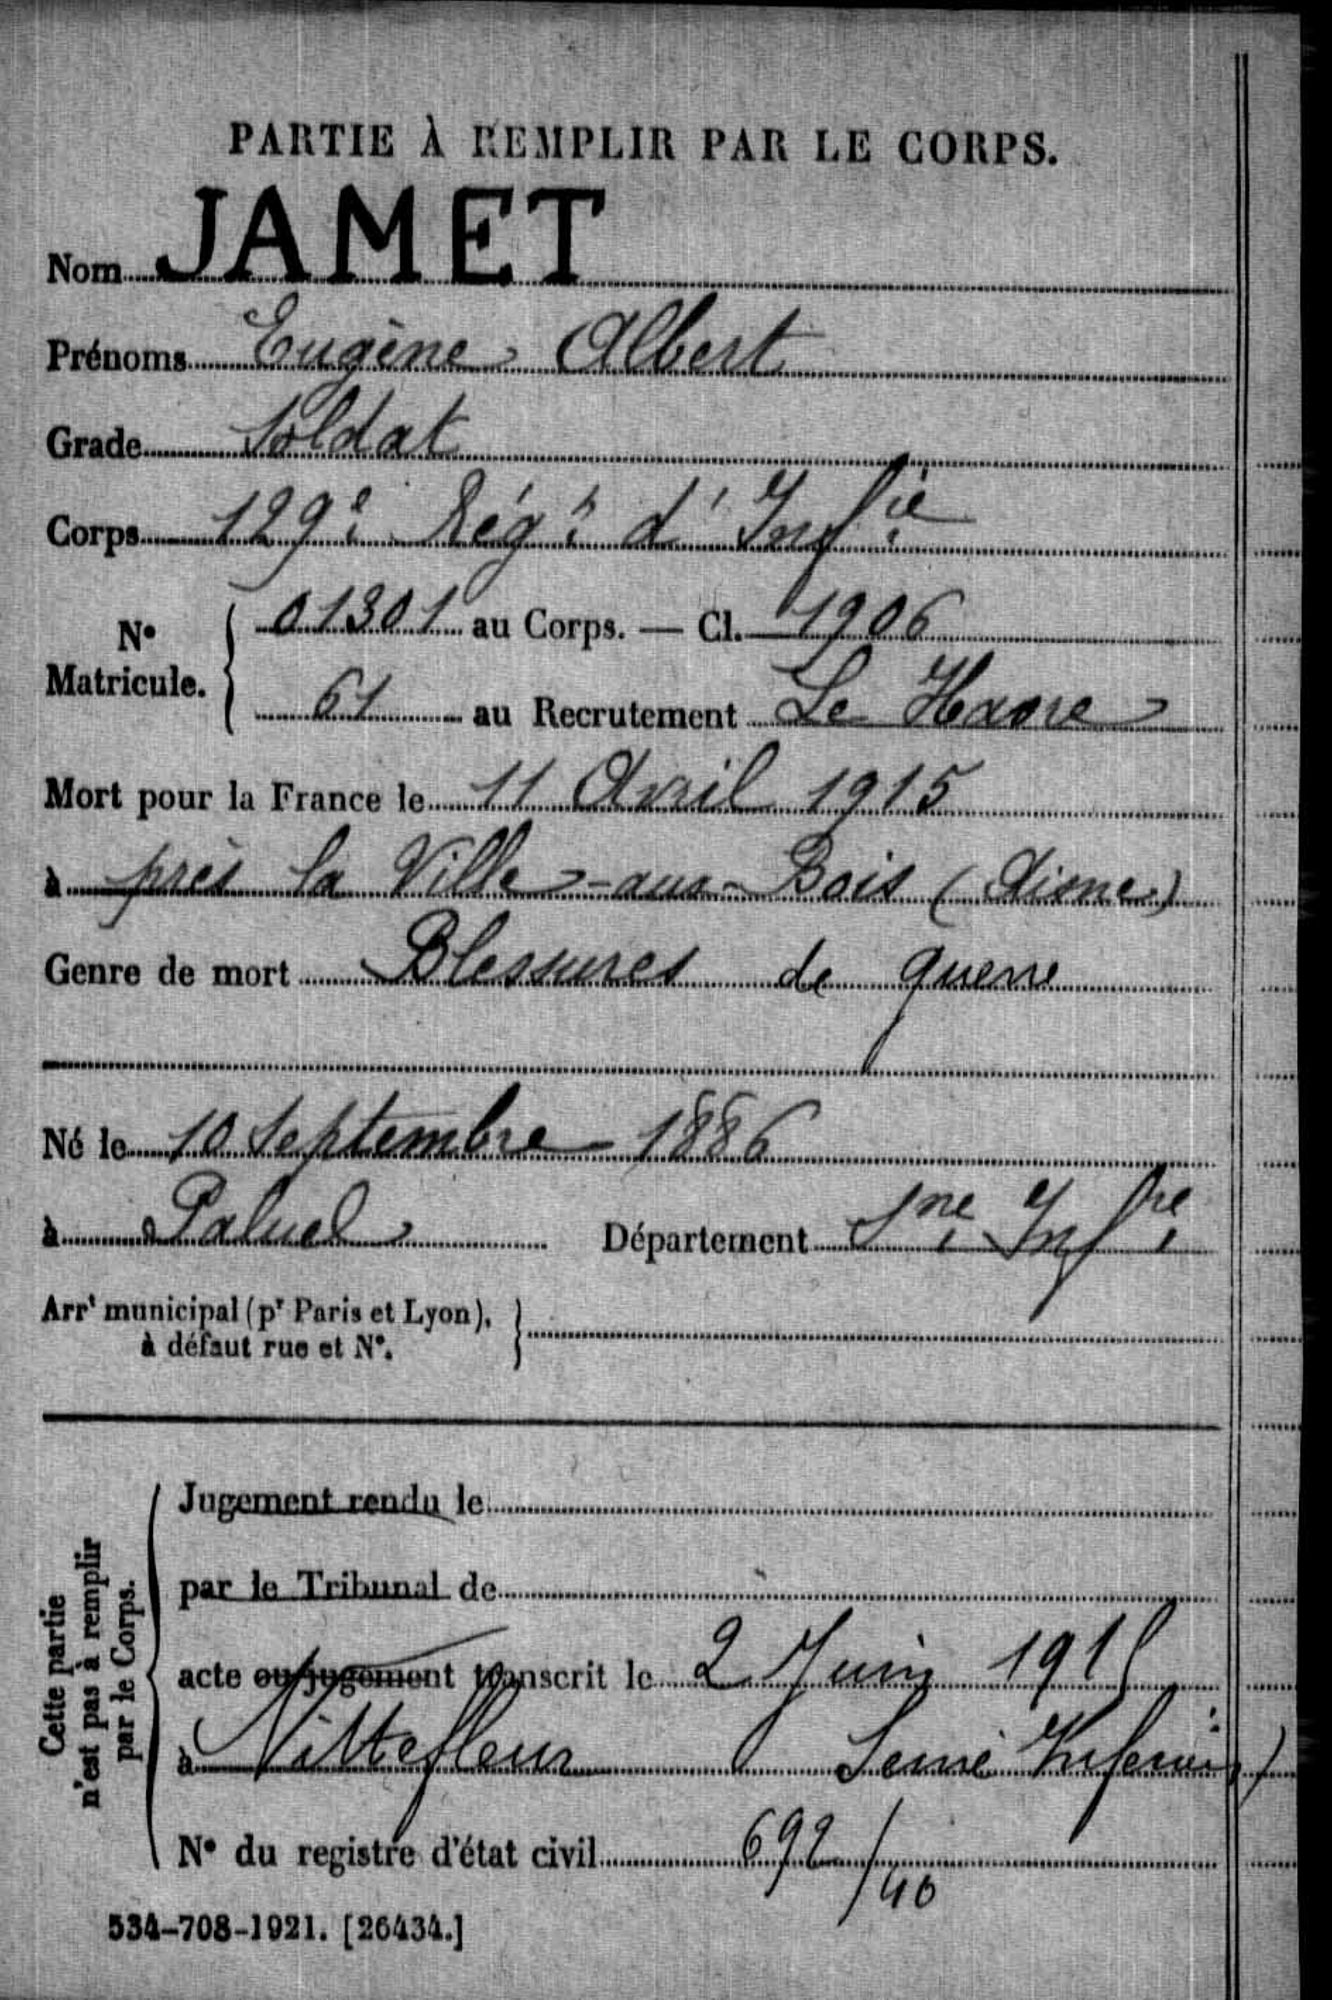 PARTIE À REMPLIR PAR LE CORPS.
Nom JAMET
Prénoms Eugène Albert
Grade Soldat
Corps 129e Régt d'Infie
No Matricule. 01301 au Corps. — Cl. 1906
61 au Recrutement Le Havre
Mort pour la France le 11 Avril 1915
à près la Ville-aux-Bois (Aisne)
Genre de mort Blessures de guerre
Né le 10 Septembre 1886
à Paluel Département Sne Infre
Arrt municipal (pr Paris et Lyon),
à défaut rue et No.
Cette partie
n'est pas à remplir
par le Corps.
Jugement rendu le
par le Tribunal de
acte ou jugement transcrit le 2 Juin 1915
à Vittefleur Seine Inferieu)
No du registre d'état civil 692/40
534-708-1921. [26434.]